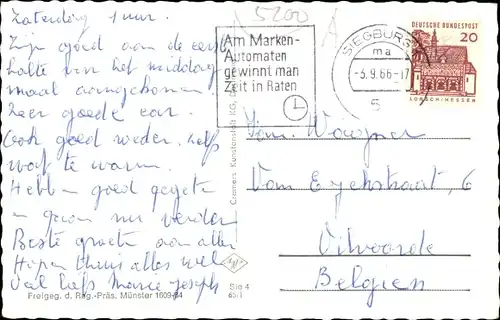 5200
Zaterdag 1 uur.
Zijn goed aan de eerst
halte van het middag
maal aangekomen
Zeer goede car.
Ook goed weder, zelfs
wat te warm.
Hebben goed gegeten
en gaan nu verder
Beste groeten aan allen
Hopen thuis alles wel
Marie-Joseph
Freigeg. d. Reg.-Präs. Münster 1609-64
Cramers Kunstanstalt KG,
Sie 4
65/1
Am Marken-
Automaten
gewinnt man
Zeit in Raten
SIEGBURG
ma
-3.9.66-17
5
DEUTSCHE BUNDESPOST
20
LORSCH/HESSEN
Fam.
Van Eyckstraat, 6
Vilvoorde
Belgien